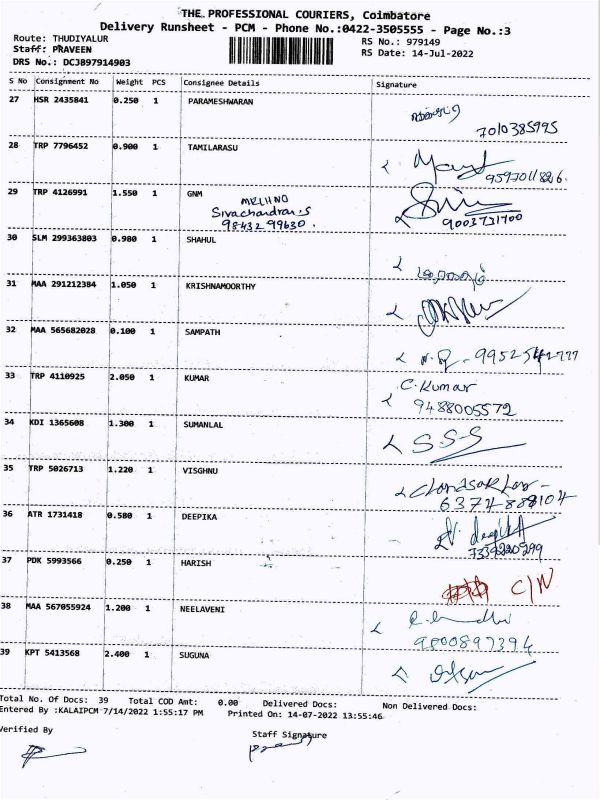 THE PROFESSIONAL COURIERS, Coimbatore
Delivery Runsheet - PCM - Phone No.:0422-3505555 - Page No.:3
Route: THUDIYALUR RS No.: 979149
Staff: PRAVEEN RS Date: 14-Jul-2022
DRS No.: DCJB97914903
S No Consignment No Weight PCS Consignee Details Signature
27 HSR 2435841 0.250 1 PARAMESHWARAN
7010385995
28 TRP 7796452 0.900 1 TAMILARASU
29 TRP 4126991 1.550 1 GNM
Sivachandran.S
98432 99630. 9003731700
30 SLM 299363803 0.980 1 SHAHUL
31 MAA 291212384 1.050 1 KRISHNAMOORTHY
32 MAA 565682028 0.100 1 SAMPATH
33 TRP 4110925 2.050 1 KUMAR C.Kumar
9488005572
34 KDI 1365608 1.300 1 SUMANLAL S.S.S
35 TRP 5026713 1.220 1 VISGHNU
36 ATR 1731418 0.580 1 DEEPIKA
37 PDK 5993566 0.250 1 HARISH
C/N
38 MAA 567055924 1.200 1 NEELAVENI
39 KPT 5413568 2.400 1 SUGUNA
Total No. Of Docs: 39 Total COD Amt: 0.00 Delivered Docs: Non Delivered Docs:
Entered By :KALAIPCM 7/14/2022 1:55:17 PM Printed On: 14-07-2022 13:55:46
Verified By Staff Signature